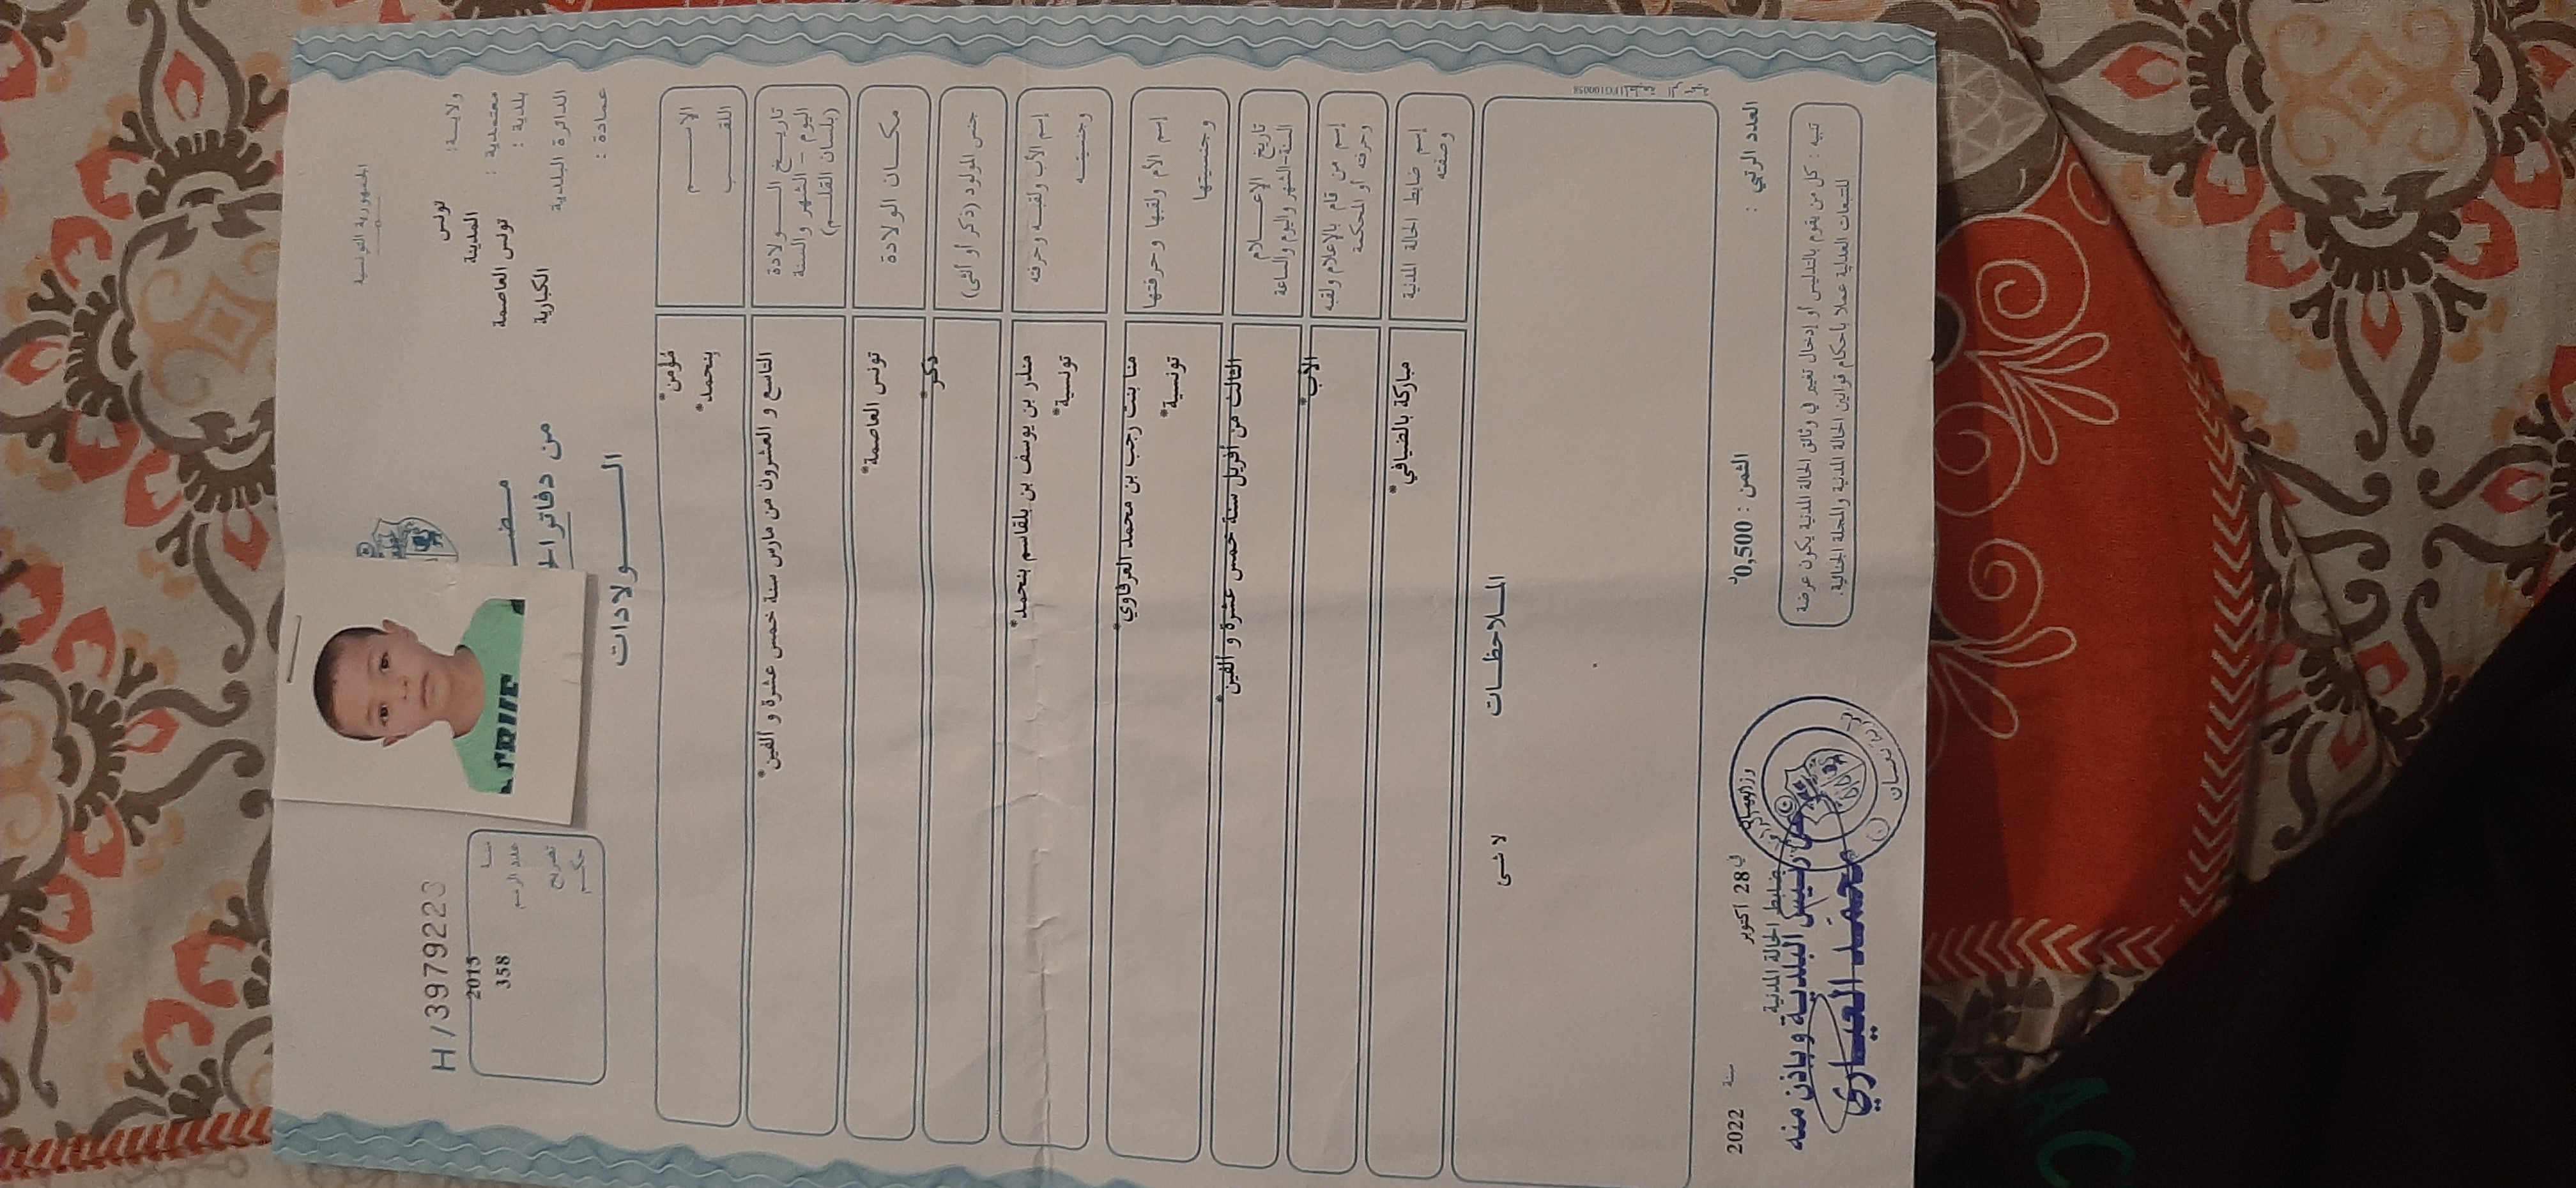 الجمهورية التونسية
ولايـة: تونس
معتمدية: المدينة
بلدية: تونس العاصمة
الدائرة البلدية الكبارية
عمادة:
H/3979223
2015 سنـة
358 عدد الرسم
تصريح
حكم
مضـ
من دفاتر الحـ
الـــولادات
الاســـم مؤمن*
اللقـب بنحمد*
تاريـخ الــولادة التاسع و العشرون من مارس سنة خمس عشرة و الفين*
(اليوم - الشهر والسنة
بلسان القلـم)
مكــان الولادة تونس العاصمة*
جنس المولود (ذكر أو أنثى) ذكر*
إسم الأب ولقبـه وحرفته منذر بن يوسف بن بلقاسم بنحمد*
وجنسيتـه تونسية*
إسم الأم ولقبها وحرفتها منا بنت رجب بن محمد العرفاوي*
وجنسيتها تونسية*
تاريخ الإعــلام الثالث من أفريل سنة خمس عشرة و الفين*
السنة-الشهر واليوم والساعة
إسم من قام بالإعلام ولقبه الأب*
وحرفته أو المحكمة
إسم ضابط الحالة المدنية مباركة بالضيافي*
وصفته
المــلاحظــات
لا شـئ
العدد الرتبي :
الثمن : 0,500د
في 28 أكتوبر سنة 2022
ضابط الحالة المدنية
عن رئيس البلدية و باذن منه
محمد العياري
تنبيه : كل من يقوم بالتدليس أو إدخال تغيير في وثائق الحالة المدنية يكون عرضة
للتتبعات العدلية عملا بأحكام قوانين الحالة المدنية والمجلة الجنائية.